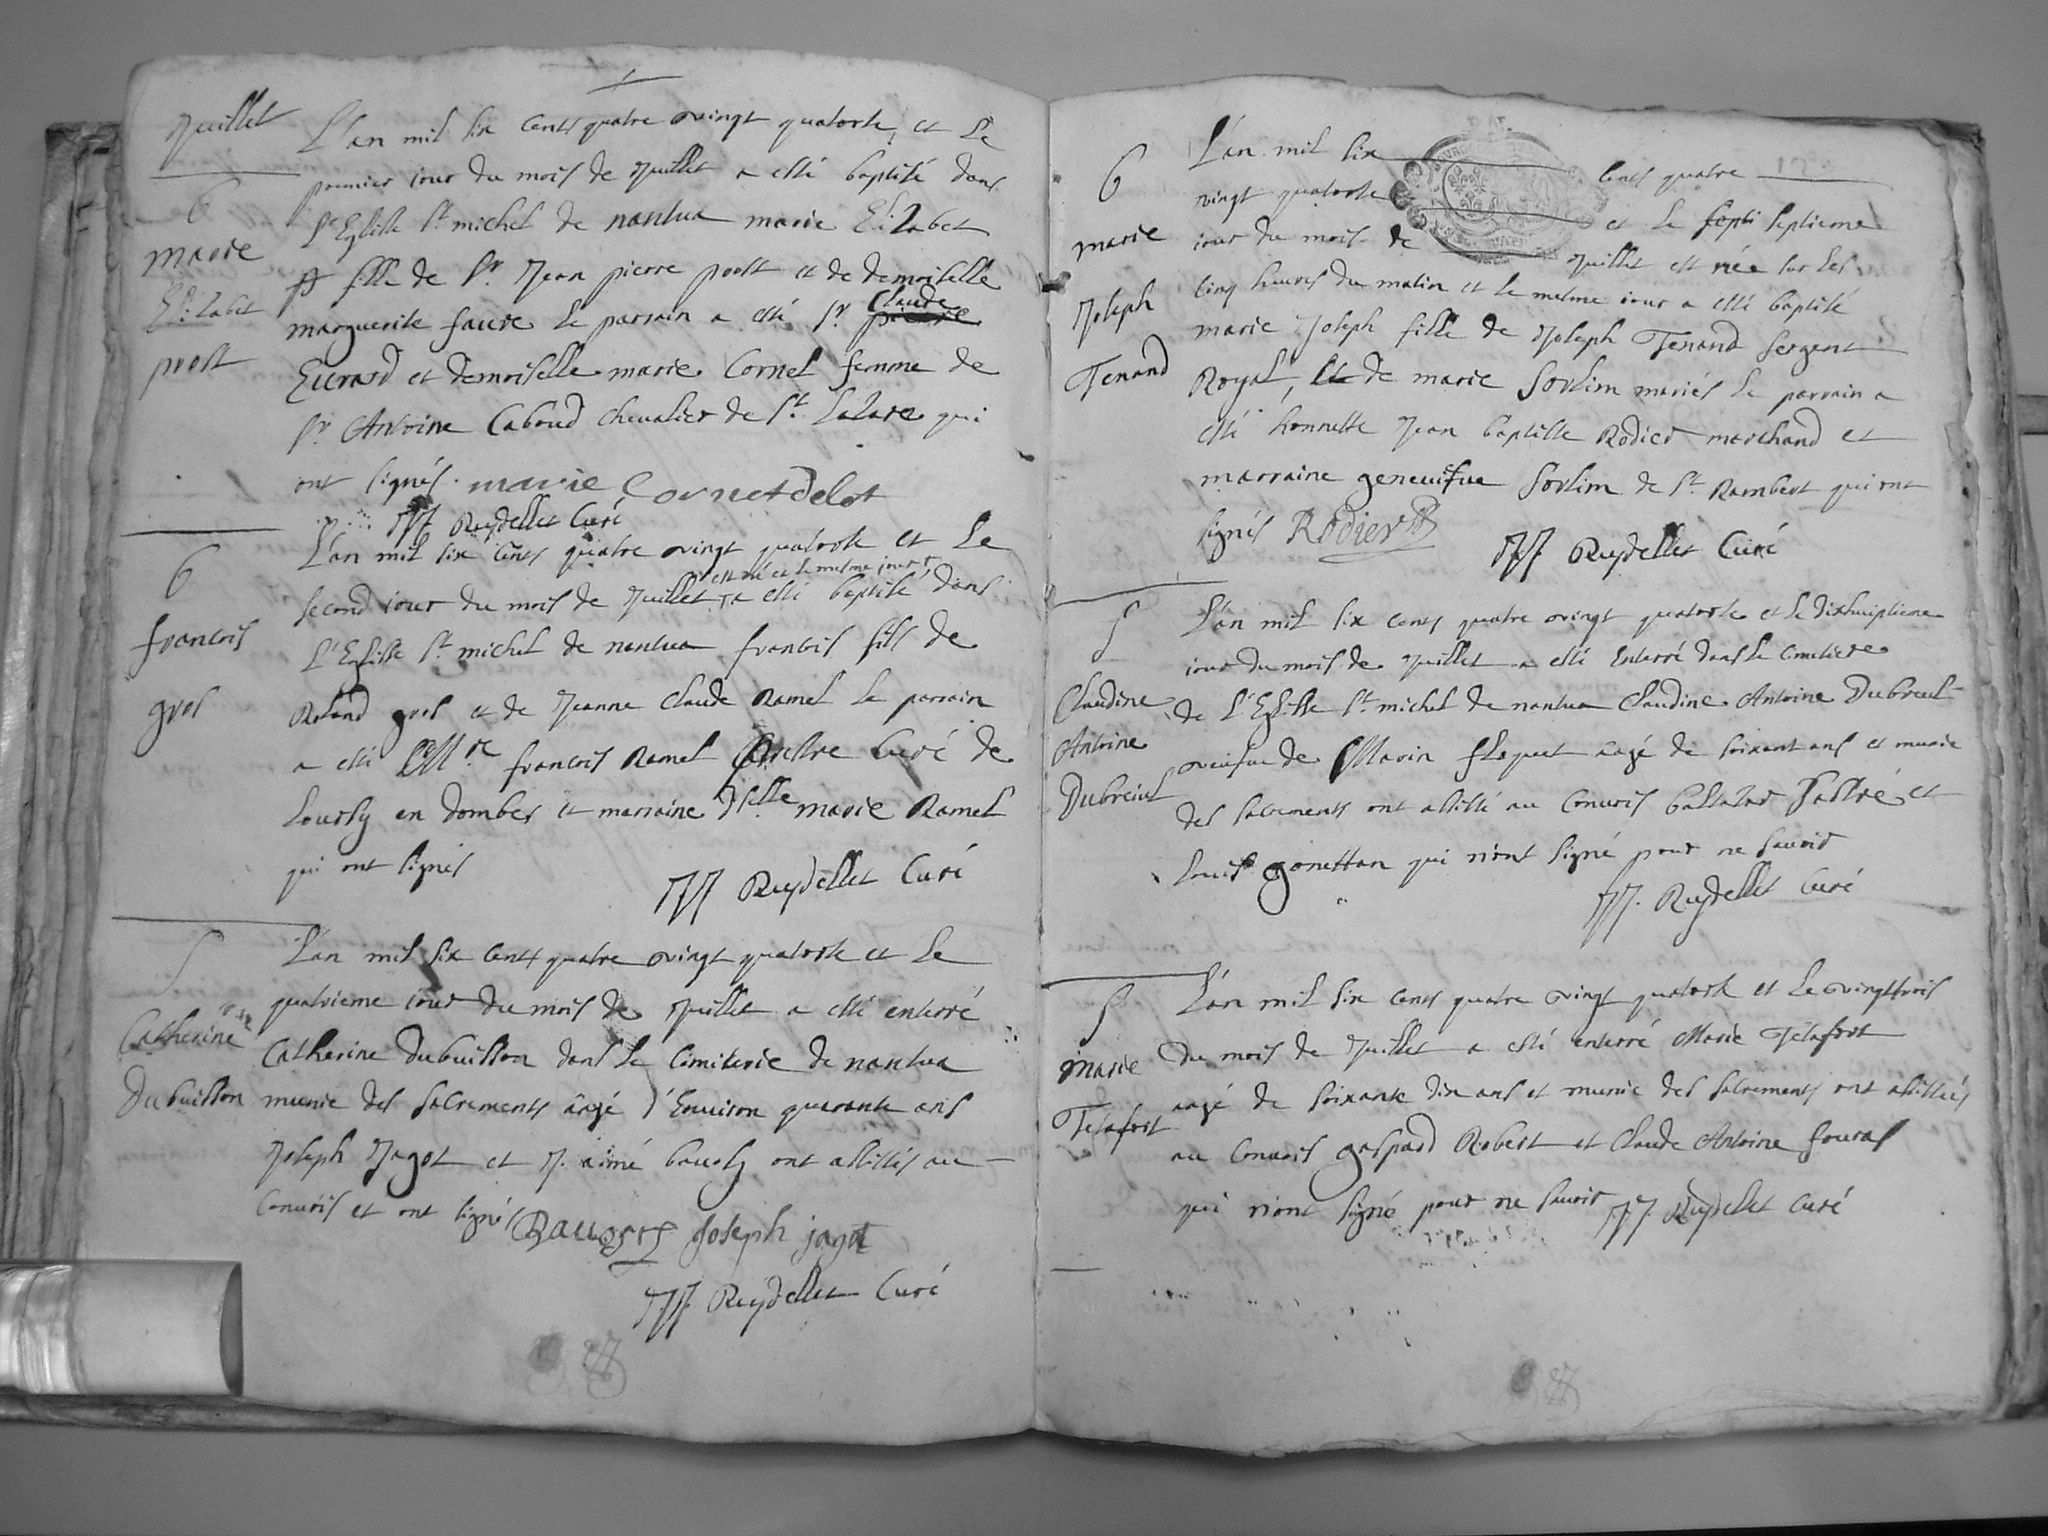 Juillet
L'an mil six cents quatre vingt quatorze, et le
premier iour du mois de Juillet a esté baptisé dans
l'Eglisse St michel de nantua marie Elizabet
fille de Sr. Jean pierre prost et de demoiselle
marguerite faure le parrain a esté Sr Claude
Eurard et demoiselle marie Cornet femme de
Sr Antoine Caboud chevalier de St. Lazare qui
ont signés. marie Cornet delot
Reydellet Curé
b
marie
Elizabet
prost
L'an mil six cents quatre vingt quatorze et le
est né et le mesme jour
second iour du mois de Juillet a esté baptisé dans
L'Eglisse St michel de nantua francois fils de
Roland gros et de Jeanne Claude Ramel le parrain
a esté Mre francois Ramel prestre Curé de
en dombes et marraine dlle. marie Ramel
qui ont signés
Reydellet Curé
b
francois
gros
L'an mil six cents quatre vingt quatorze et le
quatrieme iour du mois de Juillet a esté enterré
Catherine Dubuisson dans le Cimiterie de nantua
munie des sacrements aagé d'Enuiron quarante ans
Joseph Jagot et J. aimé ont assistés au
Conuois et ont signés Joseph jagot
Reydellet Curé
S
Catherine
Dubuisson
L'an mil six cents quatre
vingt quatorze et le septi septieme
iour du mois de Juillet est née sur les
cinq heures du matin et le mesme iour a esté baptisé
marie Joseph fille de Joseph Tenand sergent
Royal, et de marie Sorlim mariés le parrain a
esté honneste Jean baptiste Rodier marchand et
marraine geneuifue Sorlim de St. Rambert qui ont
signés Rodier
Reydellet Curé
b
marie
Joseph
Tenand
L'an mil six cents quatre vingt quatorze et le dixhuiptieme
iour du mois de Juillet a esté Enterré dans le Cimetiere
de L'Eglisse St michel de nantua Claudine Antoine Dubreul
veufue de Marin floquet aagé de soixant ans et munie
des sacrements ont assisté au Conuois baltazar et
Louis gonettan qui n'ont signé pour ne sauoir
Reydellet Curé
S
Claudine
Antoine
Dubreiul
L'an mil six cents quatre vingt quatorze et le vingttrois
du mois de Juillet a esté enterré Marie Telafort
aagé de soixante dix ans et munie des sacrements ont assistés
au Conuois gaspard Robert et Claude Antoine fouras
qui n'ont signé pour ne sauoir Reydellet Curé
S
marie
Telafort